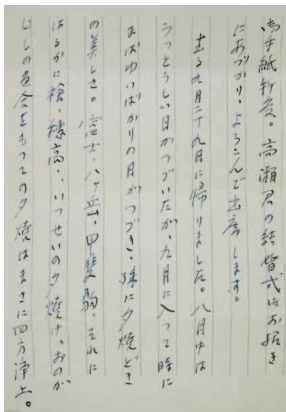 お手紙拝受。高瀬君の結婚式にお招き
にあづかり、よろこんで出席します。
去る九月二十九日に帰りました。八月中は
うっとうしい日がつづいたが、九月に入って時に
まばゆいばかりの日がつづき、殊に夕焼どき
の美しさ。富士、八ヶ岳、甲斐駒、それに
はるかに槍、穂高、いっせいの夕焼け、おのが
じしの色合をもっての夕焼はまさに四方浄土。